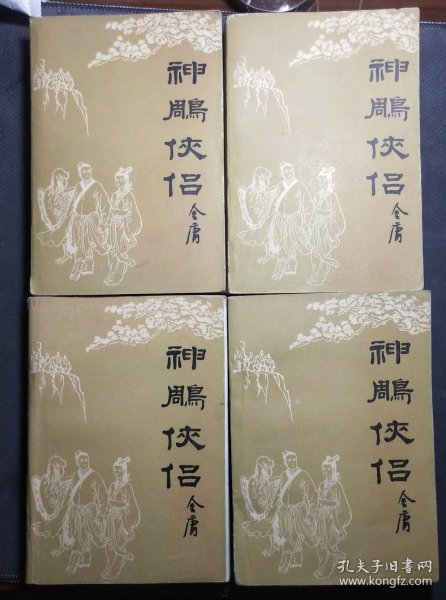 神鵰俠侶
金庸
神鵰俠侶
金庸
神鵰俠侶
金庸
神鵰俠侶
金庸
孔夫子旧书网
www.kongfz.com